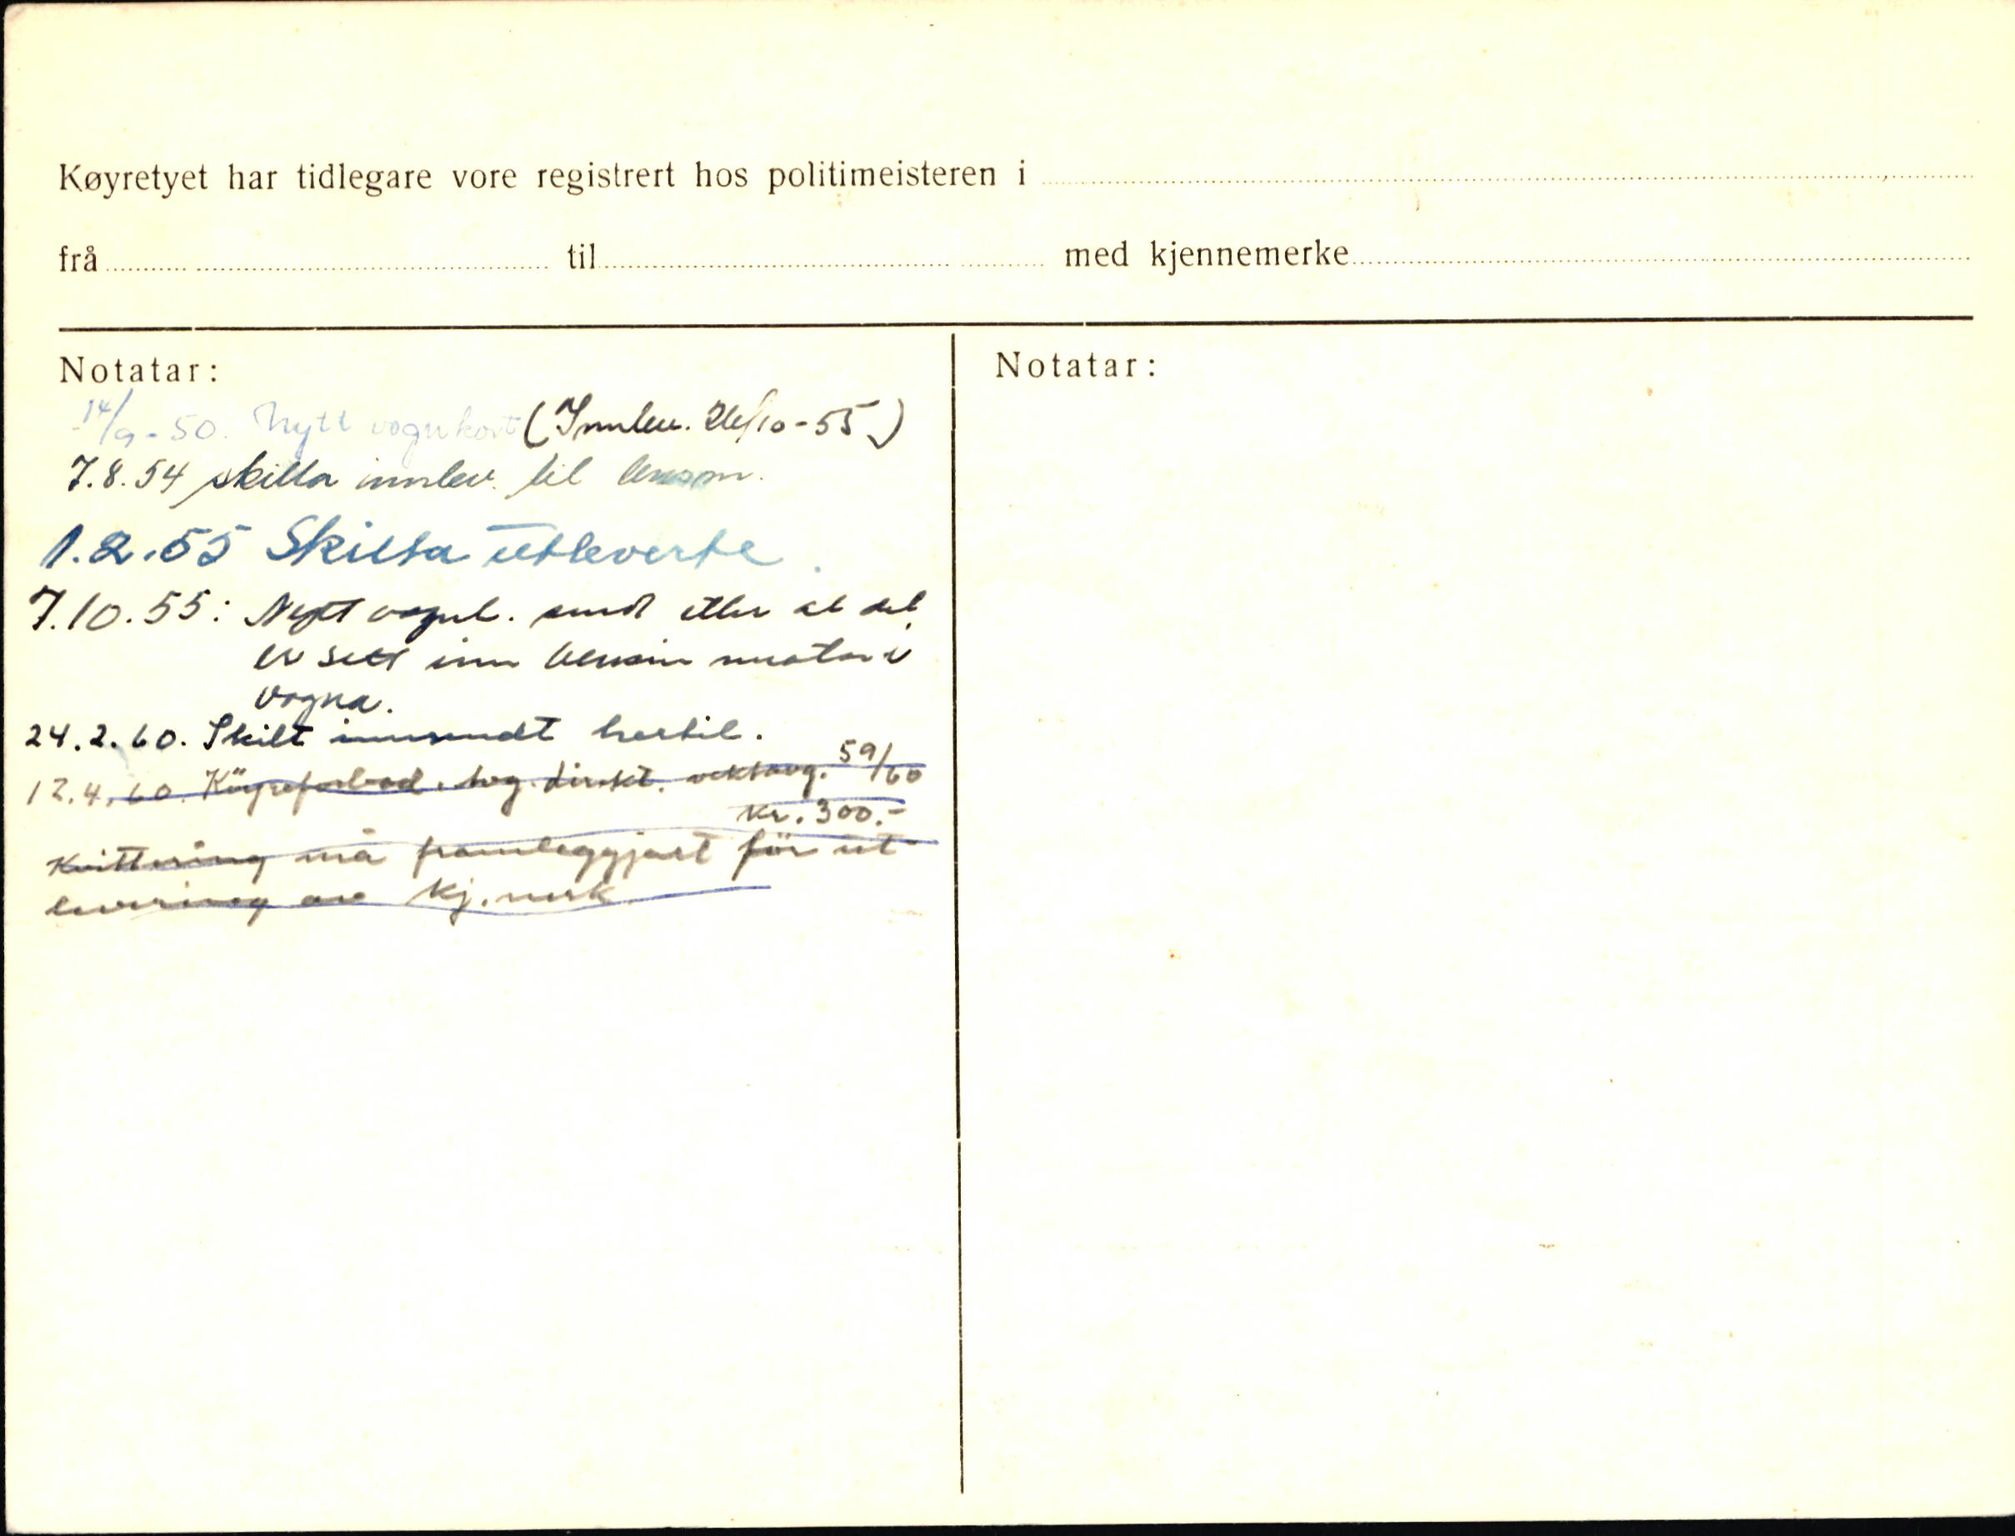 Køyretyet har tidlegare vore registrert hos politimeisteren i
frå til med kjennemerke
Notatar:
14/9-50. Nytt vognkort (Innlev. 26/10-55)
7.8.54 skilta innlev. til lensm.
1.2.55 Skilta utleverte.
7.10.55: Nytt vognk. sendt etter at det
er sett inn bensin motor i
vogna.
24.2.60. Skilt innsendt hertil.
12.4.60. Köyreforbod, veg.direkt. vektavg. 59/60
kr. 300.-
Kvittering må framleggjast för ut
levering av kj.merk
Notatar: